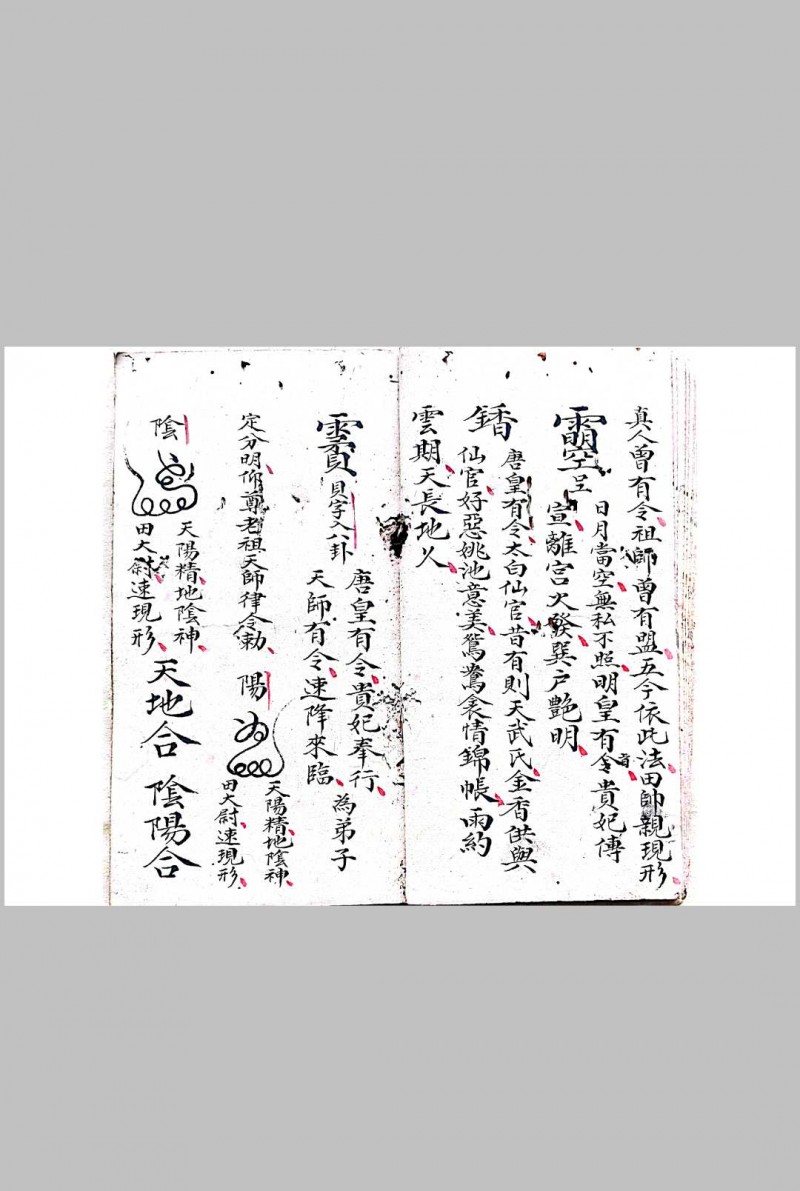 真人曾有令祖師曾有盟五今依此法田帥親現形
日月當空無私不照明皇有令音貴妃傳
呈
宣離宮火發巽户艷明
唐皇有令太白仙官昔有則天武氏金香供與
仙官好惡姚池意美鴛鴦衾情錦帳雨約
雲期天長地久
貝字入八卦
唐皇有令貴妃奉行
天師有令速降來臨
為弟子
定分明仰尊老祖天師律令勅
陽
天陽精地陰神
田大尉速現形
陰
天陽精地陰神
田大尉速現形
天地合陰陽合